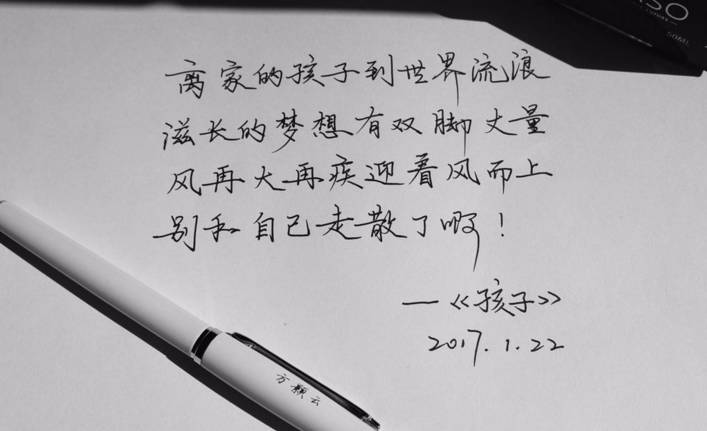 离家的孩子到世界流浪
滋长的梦想有双脚丈量
风再大再疾迎着风而上
别和自己走散了啊!
—《孩子》
2017.1.22
方颖云
SO
50ML